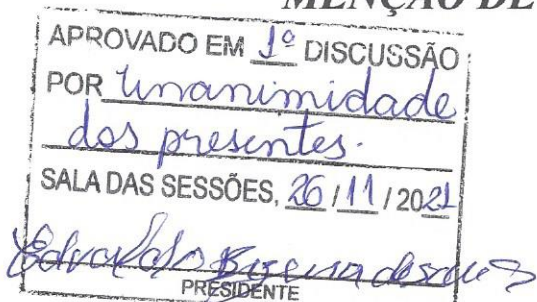 MENÇÃO DE
APROVADO EM 1º DISCUSSÃO
POR Unanimidade
dos presentes.
SALA DAS SESSÕES, 26 / 11 / 2021
PRESIDENTE